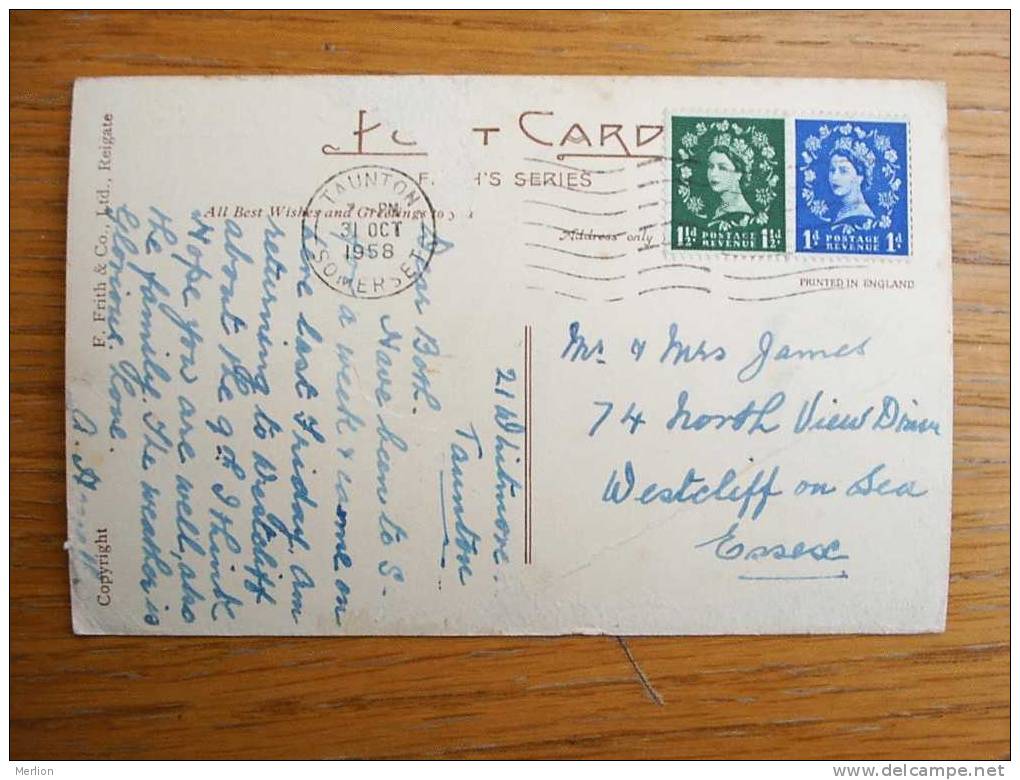 CARD
FRITH'S SERIES
All Best Wishes and Greetings to you
Address only
TAUNTON
PM
31 OCT
1958
SOMERSET
1½d POSTAGE 1½d
REVENUE
1d POSTAGE 1d
REVENUE
PRINTED IN ENGLAND
F. Frith & Co., Ltd., Reigate
Copyright
21 Whitmore.
Taunton
Dear Both.
Have been to S-
for a week & came on
here last Friday. Am
returning to Westcliff
about the 9th I think
Hope you are well, also
the family. The weather is
Glorious here.
Mr & Mrs James
74 North View Drive
Westcliff on Sea
Essex
Merlion
delcampe.net